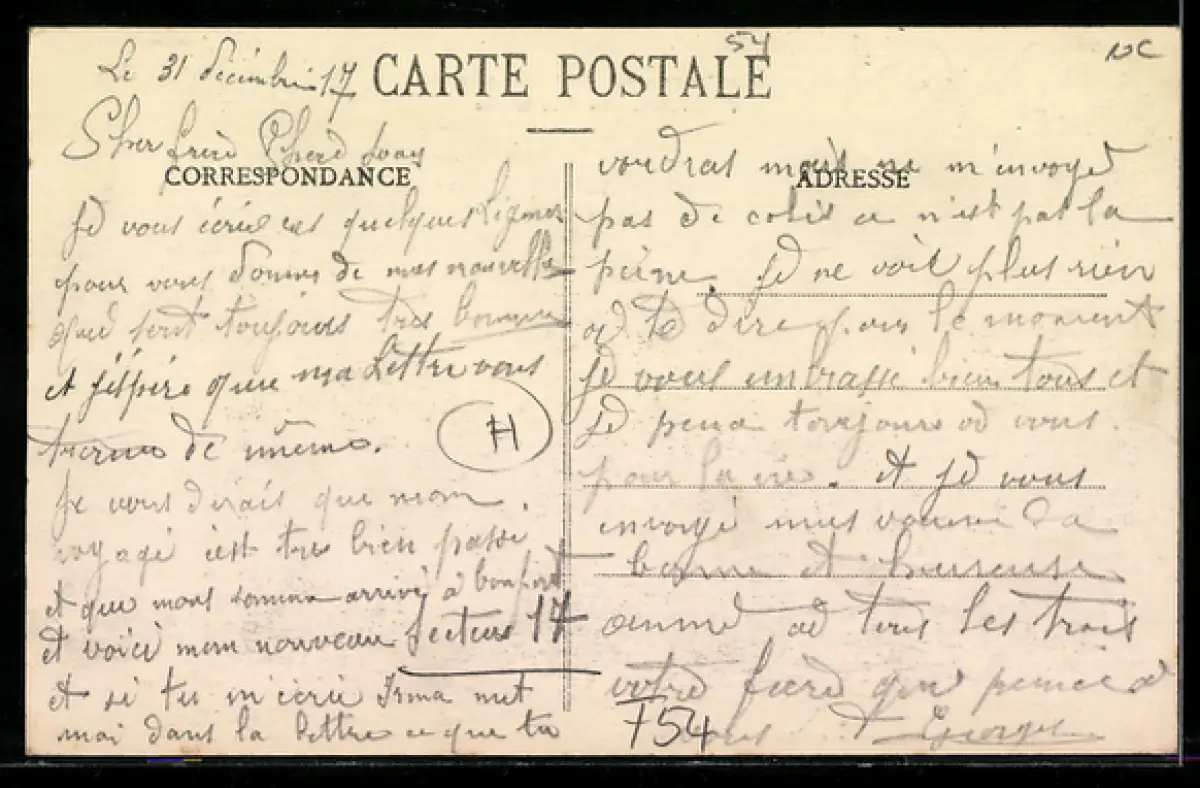 54
NC
Le 31 décembre 17
CARTE POSTALE
Cher frère Chère
CORRESPONDANCE
Je vous écrie ces quelques lignes
pour vous donner de mes nouvelles
qui sont toujours tres bonne
et j'éspére que ma lettre vous
de mûeme.
H
Je vous dirais que mon
voyage c'est tres bien passé
et que nous somme arrivé à bonfort
et voici mon nouveau secteur 17
et si tu m'écrie Irma met
moi dans la lettre ce que tu
ADRESSE
voudras mais ne m'envoye
pas de colis ce n'est pas la
peine. Je ne voit plus rien
a te dire pour le moment
Je vous embrasse bien tous et
Je pense toujours a vous
pour la vie. et Je vous
envoye mes
bonne et heureuse
année a tous les trois
votre frère que pense a
vous
T54
Georges